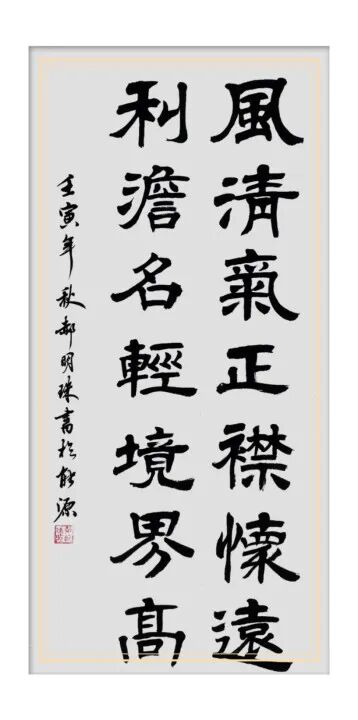 風清氣正襟懷遠
利澹名輕境界高
壬寅年秋郝明珠書於能源